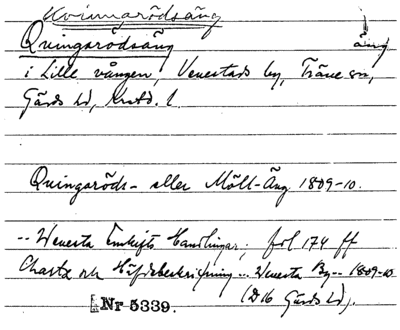 Kvinnarödsäng
Qvingarödsäng äng
i Lille vången, Venestads by, Träne sn,
Gärds hd, Krstd. l
Qvingaröds- eller Möll-Äng 1809-10.
-- Wenesta Enskifts Handlingar; fol 174 ff
Charta och Häfdebeskrifning -- Wenesta By -- 1809-10
Nr 5339. (D16 Gärds hd).